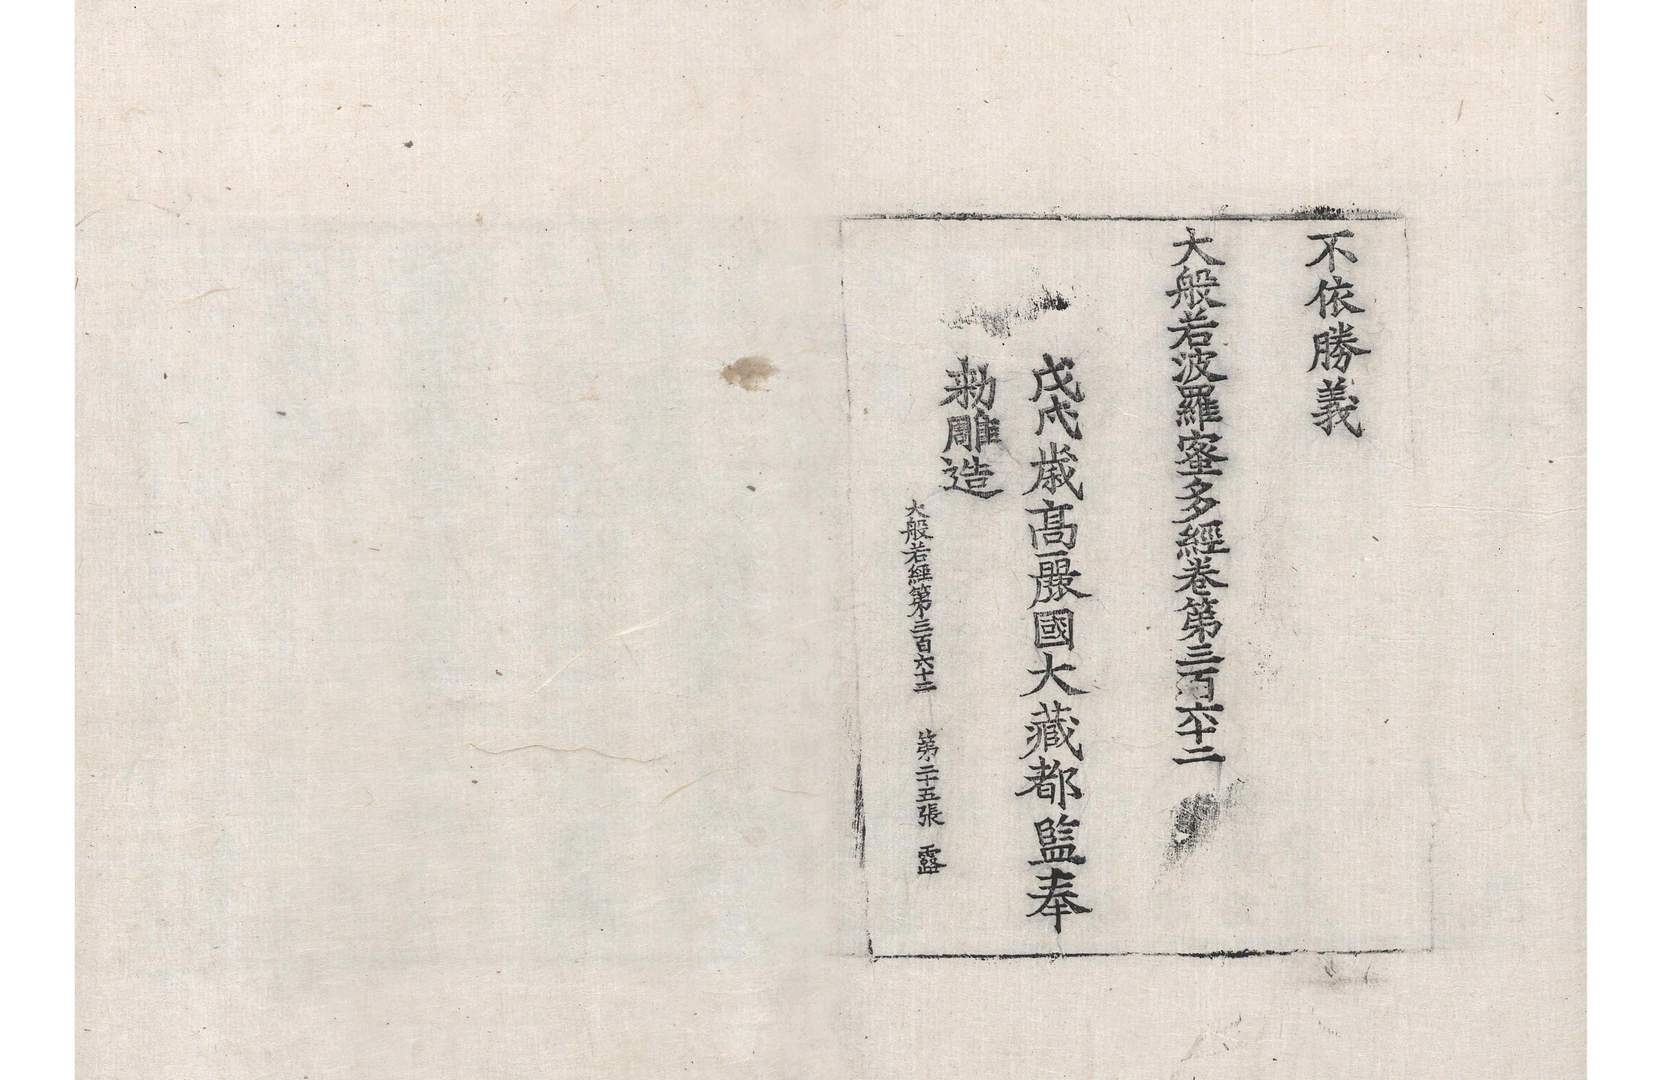 不依勝義
大般若波羅蜜多經卷第三百六十二
戊戌歲高麗國大藏都監奉
勅雕造
大般若經第三百六十二 第二十五張 露